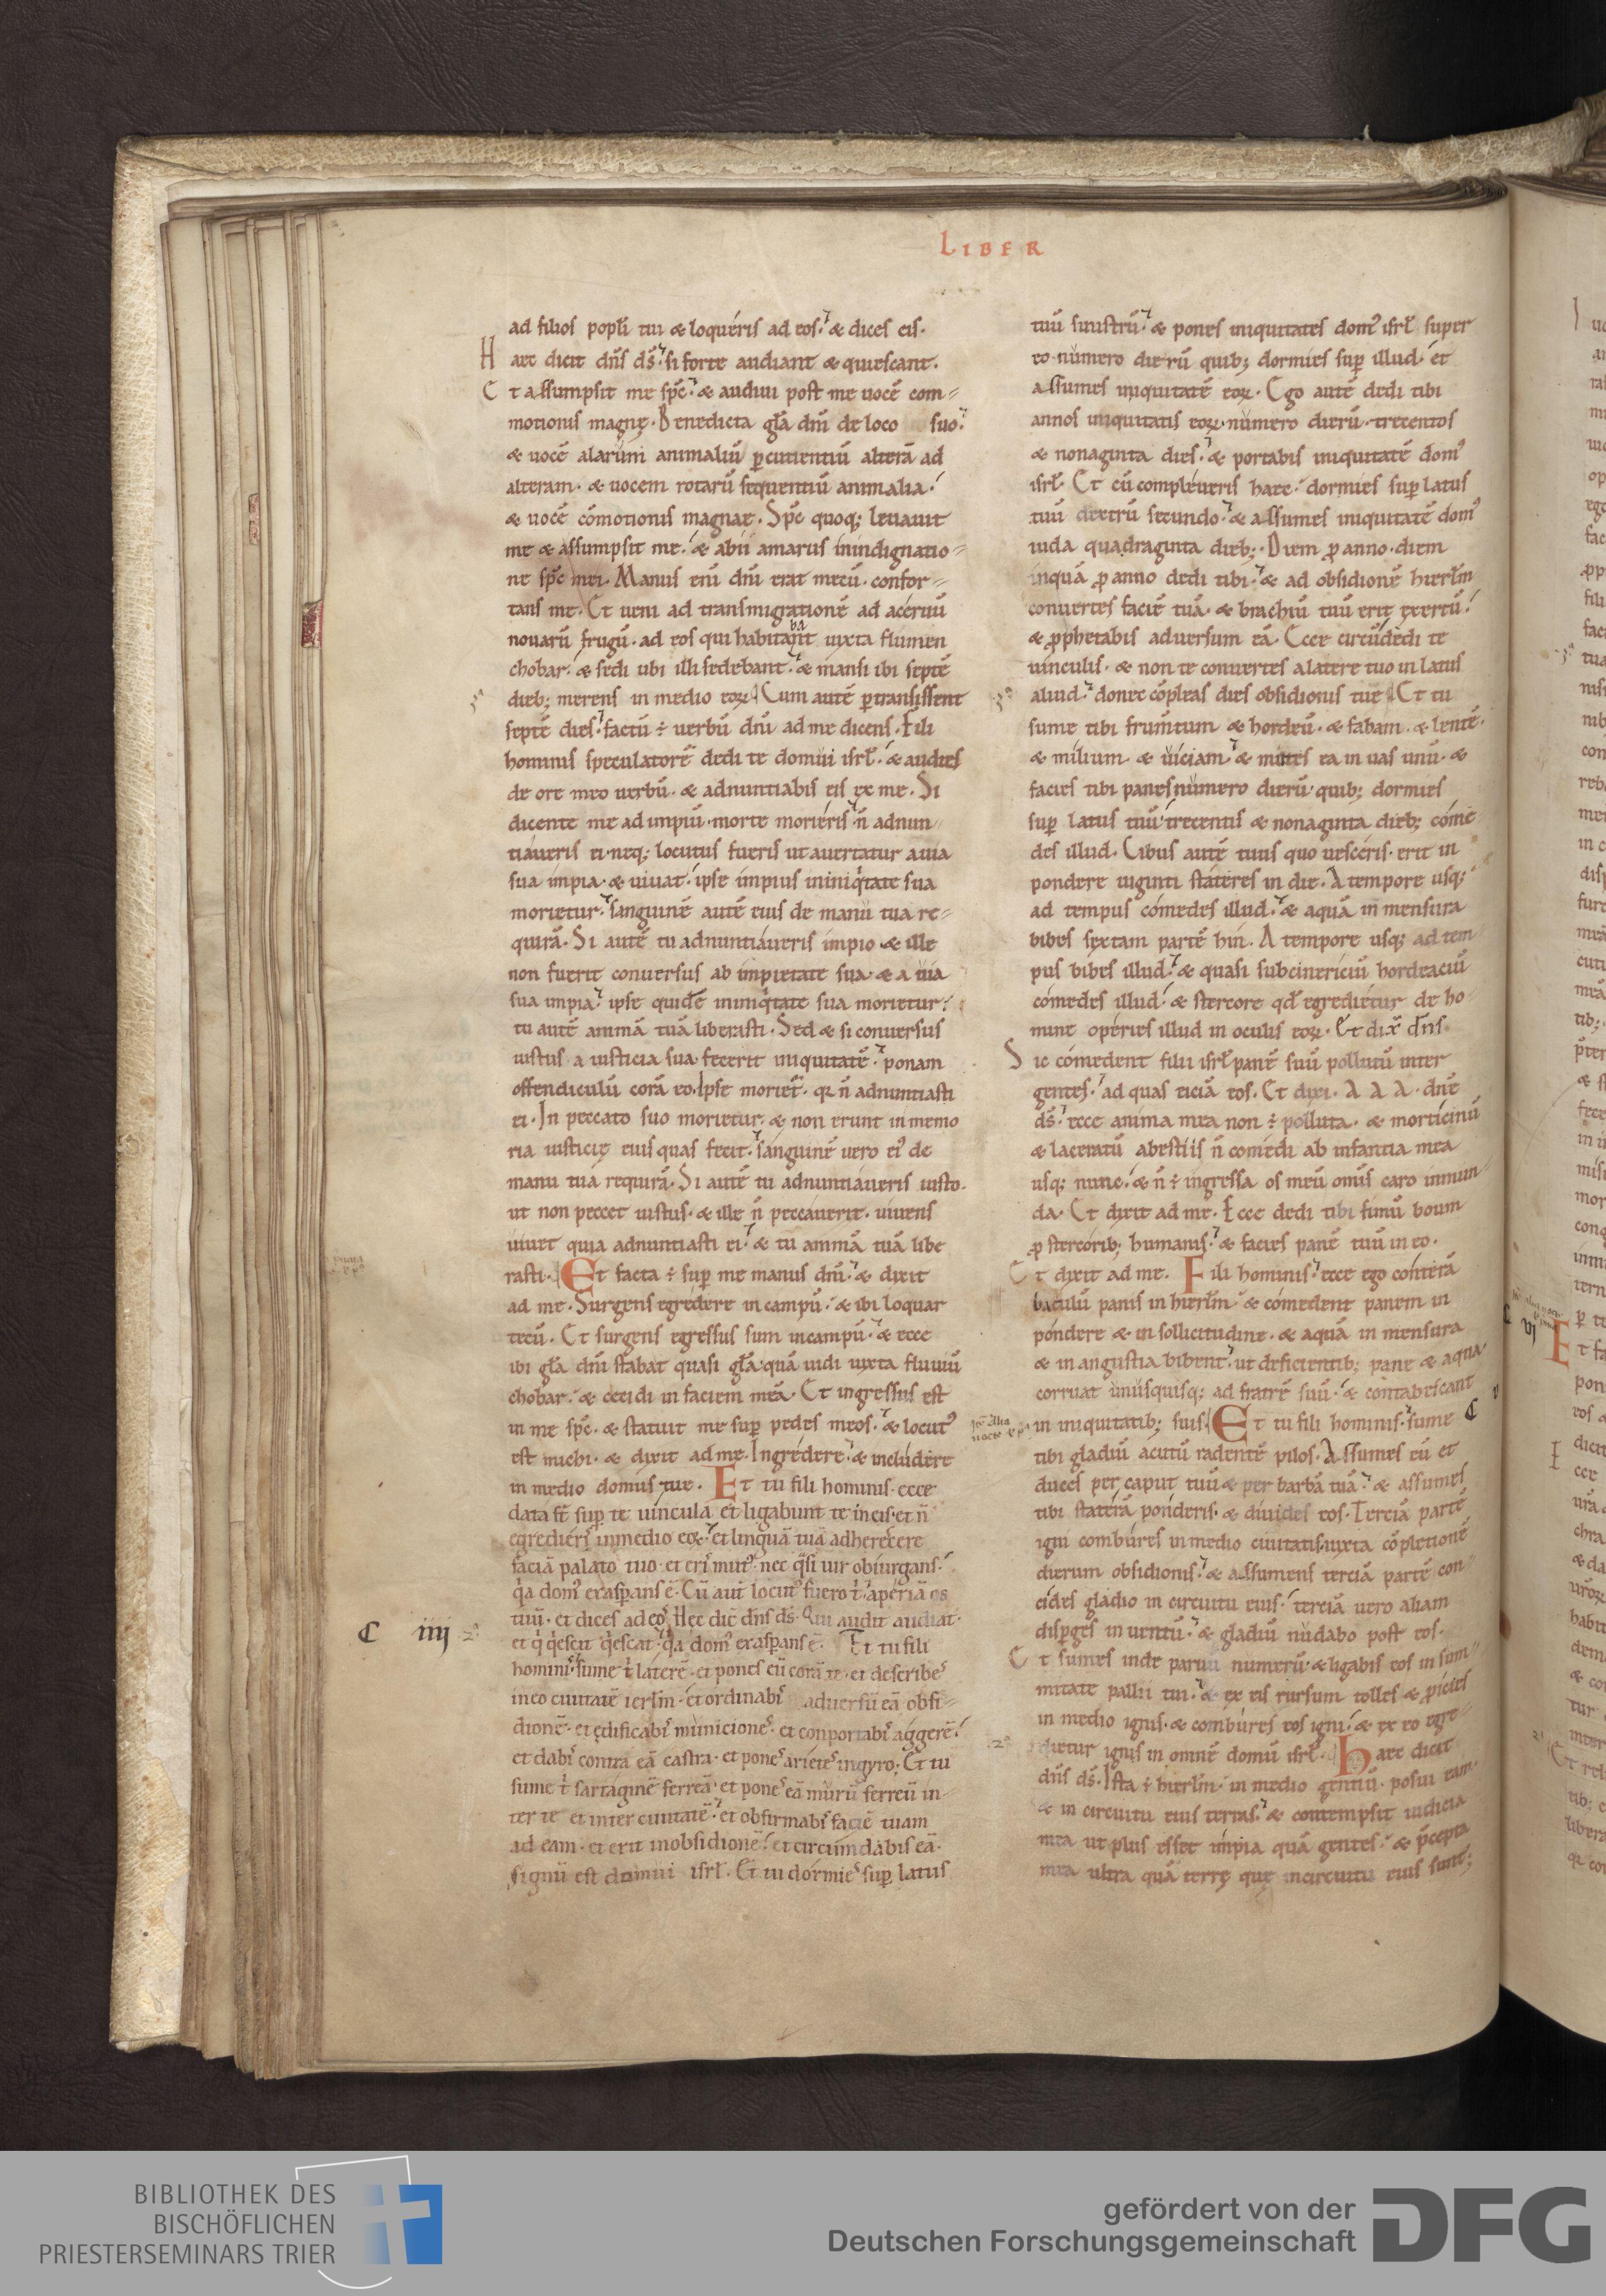 LIBER
ad filios popľi tui & loquéris ad eos. & dices eis.
Haec dicit dn̄s ds̄. si forte audiant & quiescant.
Et assumpsit me sp̄c. & audiui post me uocē com-
motionis magnę. Benedicta gl̄a dn̄i de loco suo.
& uocē alarum animaliū ꝑcutientiū alterā ad
alteram. & uocem rotarū sequentiū animalia.
& uocē cōmotionis magnae. Sp̄c quoq; leuauit
me & assumpsit me. & abii amarus inindignatio-
ne sp̄c mei. Manus enī dn̄i erat mecū. confor-
tans me. Et ueni ad transmigrationē ad acéruū
nouarū frugū. ad eos qui habitant iuxta flumen
chobar. & sedi ubi illi sedebant. & mansi ibi septē
dieb; merens in medio eoꝝ. Cum autē ꝑtransissent
septē dies. factū ÷ uerbū dn̄i ad me dicens. Fili
hominis speculatorē dedi te domui isrl̄. & audies
de ore meo uerbū. & adnuntiabis eis ex me. Si
dicente me ad impiū. morte moriéris. n̄ adnun-
tiáueris ei. neq; locutus fueris ut auertatur a uia
sua impia. & uiuat. ipse impius in iniq̇tate sua
morietur. sanguinē autē eius de manu tua re-
quirā. Si autē tu adnuntiáueris impio. & ille
non fuerit conuersus ab impietate sua. & a uia
sua impia. ipse quidē in iniq̇tate sua morietur.
tu autē animā tuā liberasti. Sed & si conuersus
iustus a iusticia sua fecerit iniquitatē. ponam
offendiculū corā eo. Ipse moriet᷑. qr n̄ adnuntiasti
ei. In peccato suo morietur. & non erunt in memo
ria iusticię eius quas fecit. sanguinē uero ei᷒ de
manu tua requirā. Si autē tu adnuntiáueris iusto.
ut non peccet iustus. & ille n̄ peccáuerit. uiuens
uiuet quia adnuntiasti ei. & tu animā tuā libe
rasti. Et facta ÷ suꝑ me manus dn̄i. & dixit
ad me. Surgens egrédere in campū. & ibi loquar
tecū. Et surgens egressus sum in campū. & ecce
ibi gl̄a dn̄i stabat quasi gl̄a quā uidi iuxta fluuiū
chobar. & cecidi in faciem meā. Et ingressus est
in me sp̄c. & statuit me suꝑ pedes meos. & locut᷒
est michi. & dixit ad me. Ingrédere. & inclúdere
in medio domus tue. Et tu fili hominis. ecce
data st̄ suꝑ te uincula et ligabunt te in eis. et n̄
egredieris in medio eoꝝ. et linguā tuā adherécere
faciā palato tuo. et eri᷒ mut᷒. nec q̇si uir obiurgans.
q̇a dom᷒ exasꝑans ē. Cū aut̄ locut᷒ fuero t̄. aperiā os
tuū. et dices ad eos. Hęc dic̄ dn̄s ds̄. Qui audit audiat.
et q̇ q̇escit q̇escat. q̇a dom᷒ exasꝑans ē. Et tu fili
homini᷒. sume t̄ laterē. et pones eū corā te. et describe᷒
in eo ciuitatē ierl̄m. et ordinabi᷒ aduersū eā obsi-
dionē. et ędificabi᷒ municione᷒. et conportabi᷒ aggerē.
et dabi᷒ contra eā castra. et pone᷒ ariete᷒ in gyro. Et tu
C iiij
sume t̄ sartaginē ferreā. et pone᷒ eā murū ferreū in-
ter te et inter ciuitatē. et obfirmabi᷒ faciē tuam
ad eam. et erit in obsidionē. et circumdabis eā.
signū est domui isrl̄. Et tu dormie᷒ suꝑ latus
tuū sinistrū. & pones iniquitates dom᷒ isrl̄ super
eo numero dierū quib; dormies suꝑ illud. et
assumes iniquitatē eoꝝ. Ego autē dedi tibi
annos iniquitatis eoꝝ. numero dierū. trecentos
& nonaginta dies. & portabis iniquitatē dom᷒
isrl̄. Et cū compléueris haec. dormies suꝑ latus
tuū dextrū secundo. & assumes iniquitatē dom᷒
iuda quadraginta dieb;. Diem ꝓ anno. diem
inquā ꝓ anno dedi tibi. & ad obsidionē hierl̄m
conuertes faciē tuā. & brachiū tuū erit exertū.
& ꝓphetabis aduersum eā. Ecce circūdedi te
uinculis. & non te conuertes a latere tuo in latus
aliud. donec cōpleas dies obsidionis tue. Et tu
sume tibi frum̄tum & hordeū. & fabam. & lentē.
& milium. & uiciam. & mittes ea in uas unū. &
facies tibi panes numero dierū. quib; dormies
suꝑ latus tuū. trecentis & nonaginta dieb; cóme-
des illud. Cibus autē tuus quo uescéris. erit in
pondere uiginti státeres in die. A tempore usq;
ad tempus cómedes illud. & aquā in mensura
bibes sextam partē hin. A tempore usq; ad tem
pus bibes illud. & quasi subcinericiū hordeaciū
cómedes illud. & stercore qd̄ egrediétur de ho
mine opéries illud in oculis eoꝝ. Et dix̄ dn̄s
Sic cómedent filii isrl̄ panē suū pollutū inter
gentes. ad quas eiciā eos. Et dixi. A A A. dn̄e
ds̄. ecce anima mea non ÷ polluta. & morticinū
& laceratū a bestiis n̄ comédi ab infantia mea
usq; nunc. & n̄ ÷ ingressa os meū om̄is caro inmun-
da. Et dixit ad me. Ecce dedi tibi fimū boum
ꝓ stercorib; humanis. & facies panē tuū in eo.
Et dixit ad me. Fili hominis. ecce ego cónterā
baculū panis in hierl̄m. & cómedent panem in
póndere & in sollicitudine. & aquā in mensura
& in angustia bibent. ut deficientib; pane & aqua.
corruat unusquisq; ad fratrē suū. & contabescant
in iniquitatib; suis. Et tu fili hominis. sume
C v
tibi gladiū acutū radentē pilos. Assumes eū et
duces per caput tuū & per barbā tuā. & assumes
tibi státerā ponderis. & diuides eos. Terciā partē
igni combures in medio ciuitatis. iuxta cōpletionē
dierum obsidionis. & assumens terciā partē con-
cides gladio in circuitu eius. terciā uero aliam
disꝑges in uentū. & gladiū nudabo post eos.
Et sumes inde paruū numerū. & ligabis eos in sum-
mitate pallii tui. & ex eis rursum tolles & ꝓicies
in medio ignis. & combures eos igni. & ex eo egre-
dietur ignis in omnē domū isrl̄. Haec dicit
dn̄s ds̄. Ista ÷ hierl̄m. in medio gentiū. posui eam.
& in circuitu eius terras. & contempsit iudicia
mea ut plus esset impia quā gentes. & p̄cepta
mea ultra quā terrę quę in circuitu eius sunt;
BIBLIOTHEK DES
BISCHÖFLICHEN
PRIESTERSEMINARS TRIER
gefördert von der
Deutschen Forschungsgemeinschaft
DFG